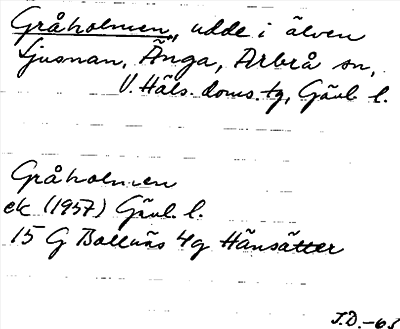 Gråholmen, udde i älven
Ljusnan, Änga, Arbrå sn,
V. Häls. doms. tg, Gävl. l.
Gråholmen
ek (1957) Gävl. l.
15 G Bollnäs 4g Hänsätter
J.D.-63